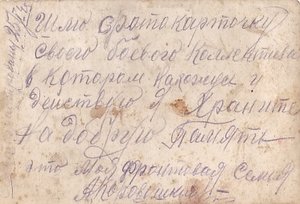 Шлю фотокарточку
своего боевого коллектива
в котором нахожусь и
действую я Храните
на добрую память
это моя фронтовая семья